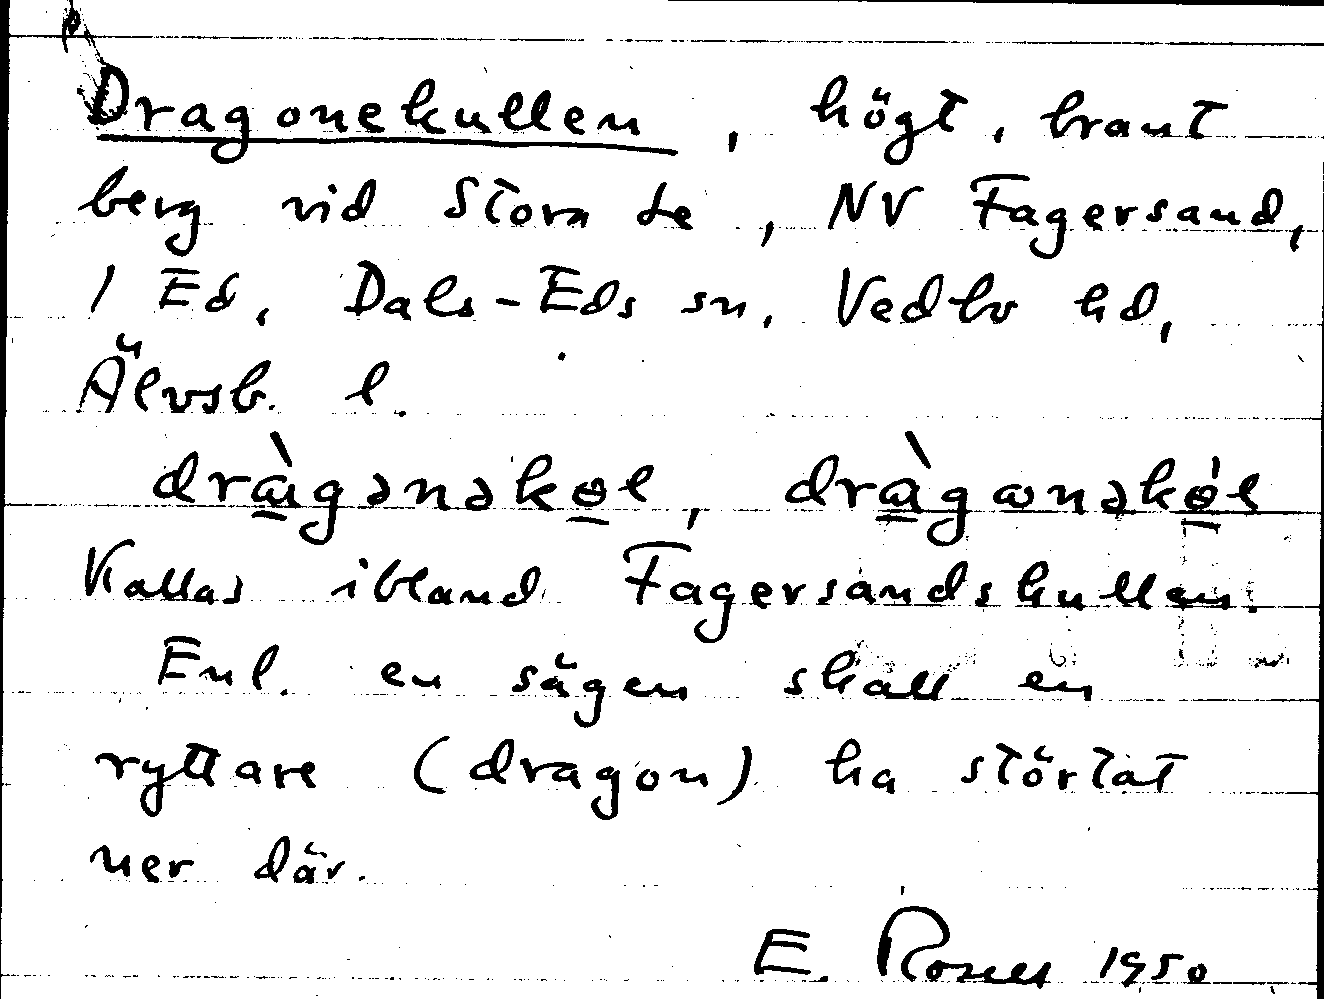 Dragonekullen, högt, brant
berg vid Stora Le, NV Fagersand,
1 Ed, Dals-Eds sn, Vedbo hd,
Älvsb. l.
dràgənəkɵl, dràgωnəkɵ́l
Kallas ibland Fagersandskullen.
Enl. en sägen skall en
ryttare (dragon) ha störtat
ner där.
E. Rosell 1950